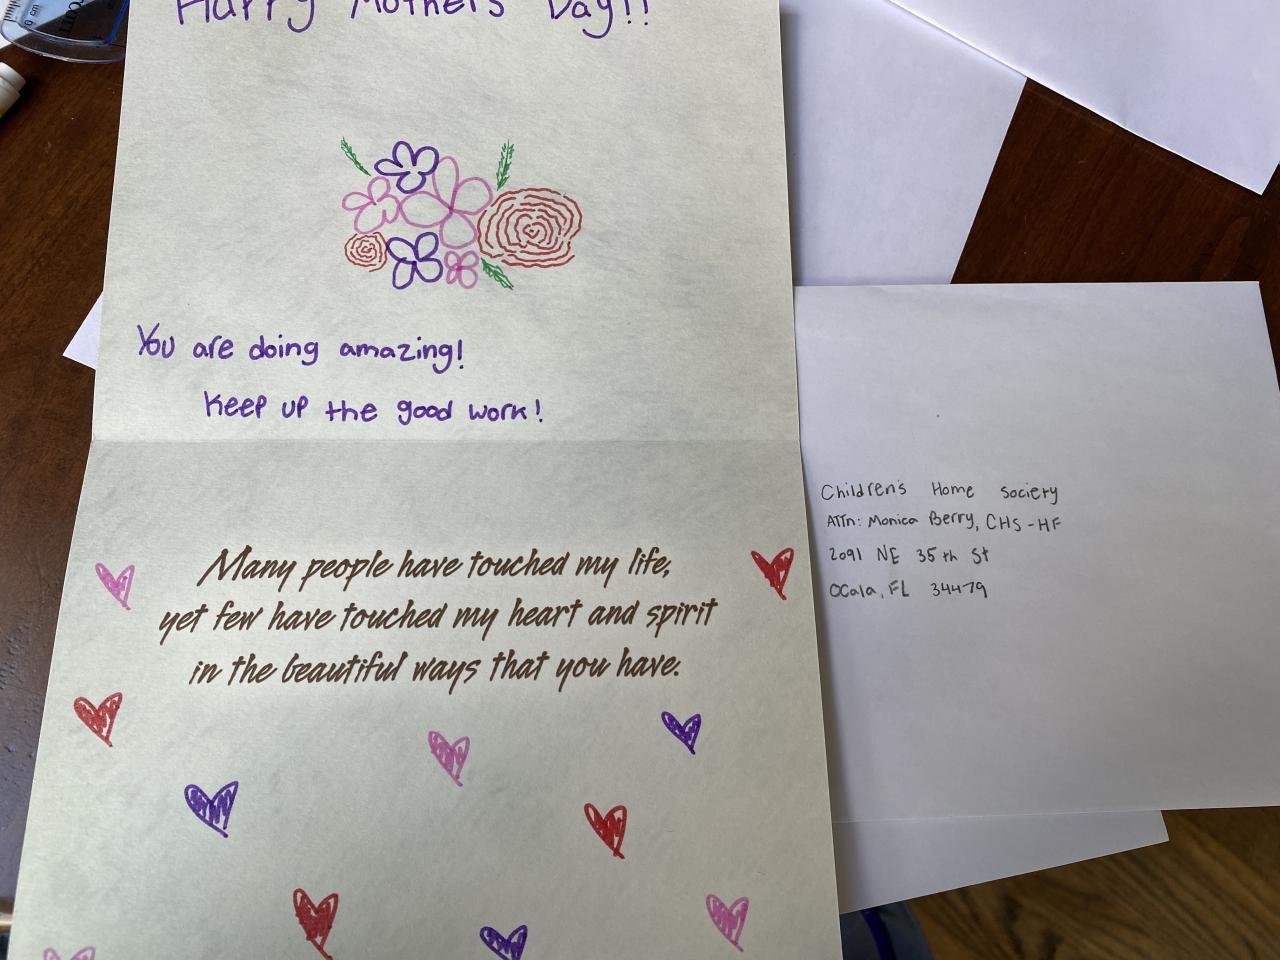 Happy Mothers Day!!
You are doing amazing!
Keep up the good work!
Many people have touched my life,
yet few have touched my heart and spirit
in the beautiful ways that you have.
Children's Home Society
ATTn: Monica Berry, CHS-HF
2091 NE 35th St
Ocala, FL 34479